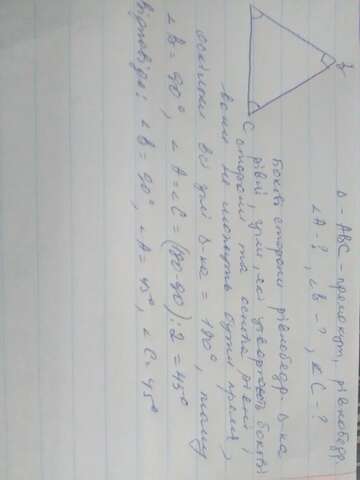 Δ - ABC - прямокут, рівнобедр.
∠A-?, ∠B-?, ∠C-?
C
Бокові сторони рівнобедр. Δ-ка
рівні, кути, які утворюють бокові
сторони та основа рівні і
вони не можуть бути прямі,
оскільки всі кути Δ-ка = 180°, тому
∠B = 90°, ∠A = ∠C = (180-90):2 = 45°
Відповідь: ∠B = 90°, ∠A = 45°, ∠C = 45°